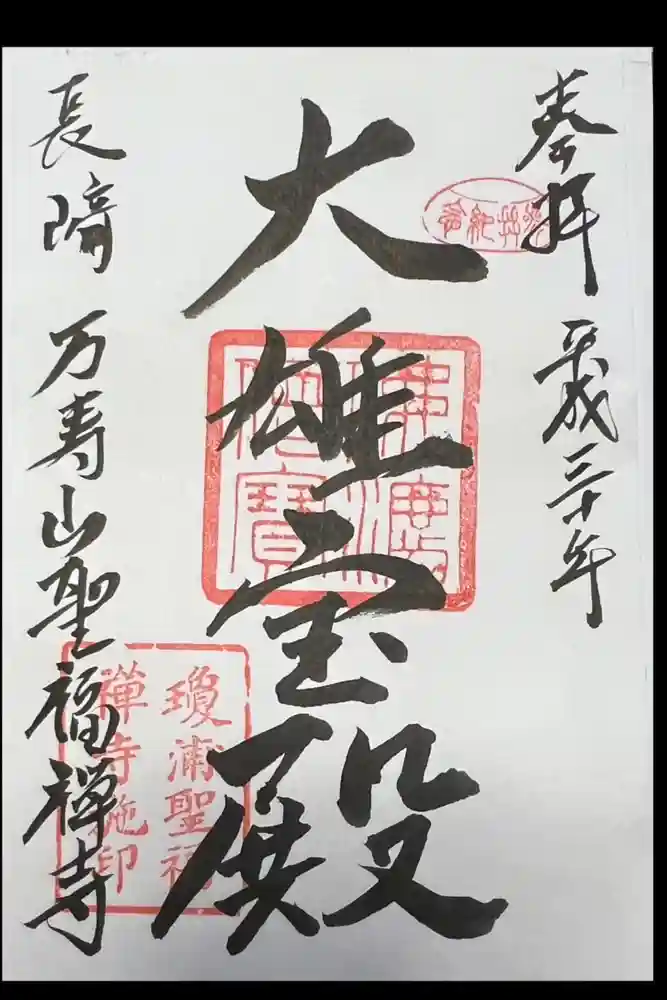 奉拝 平成三十年
大雄宝殿
長崎 万寿山聖福禅寺
佛法僧寳
瓊浦聖福
禅寺施印